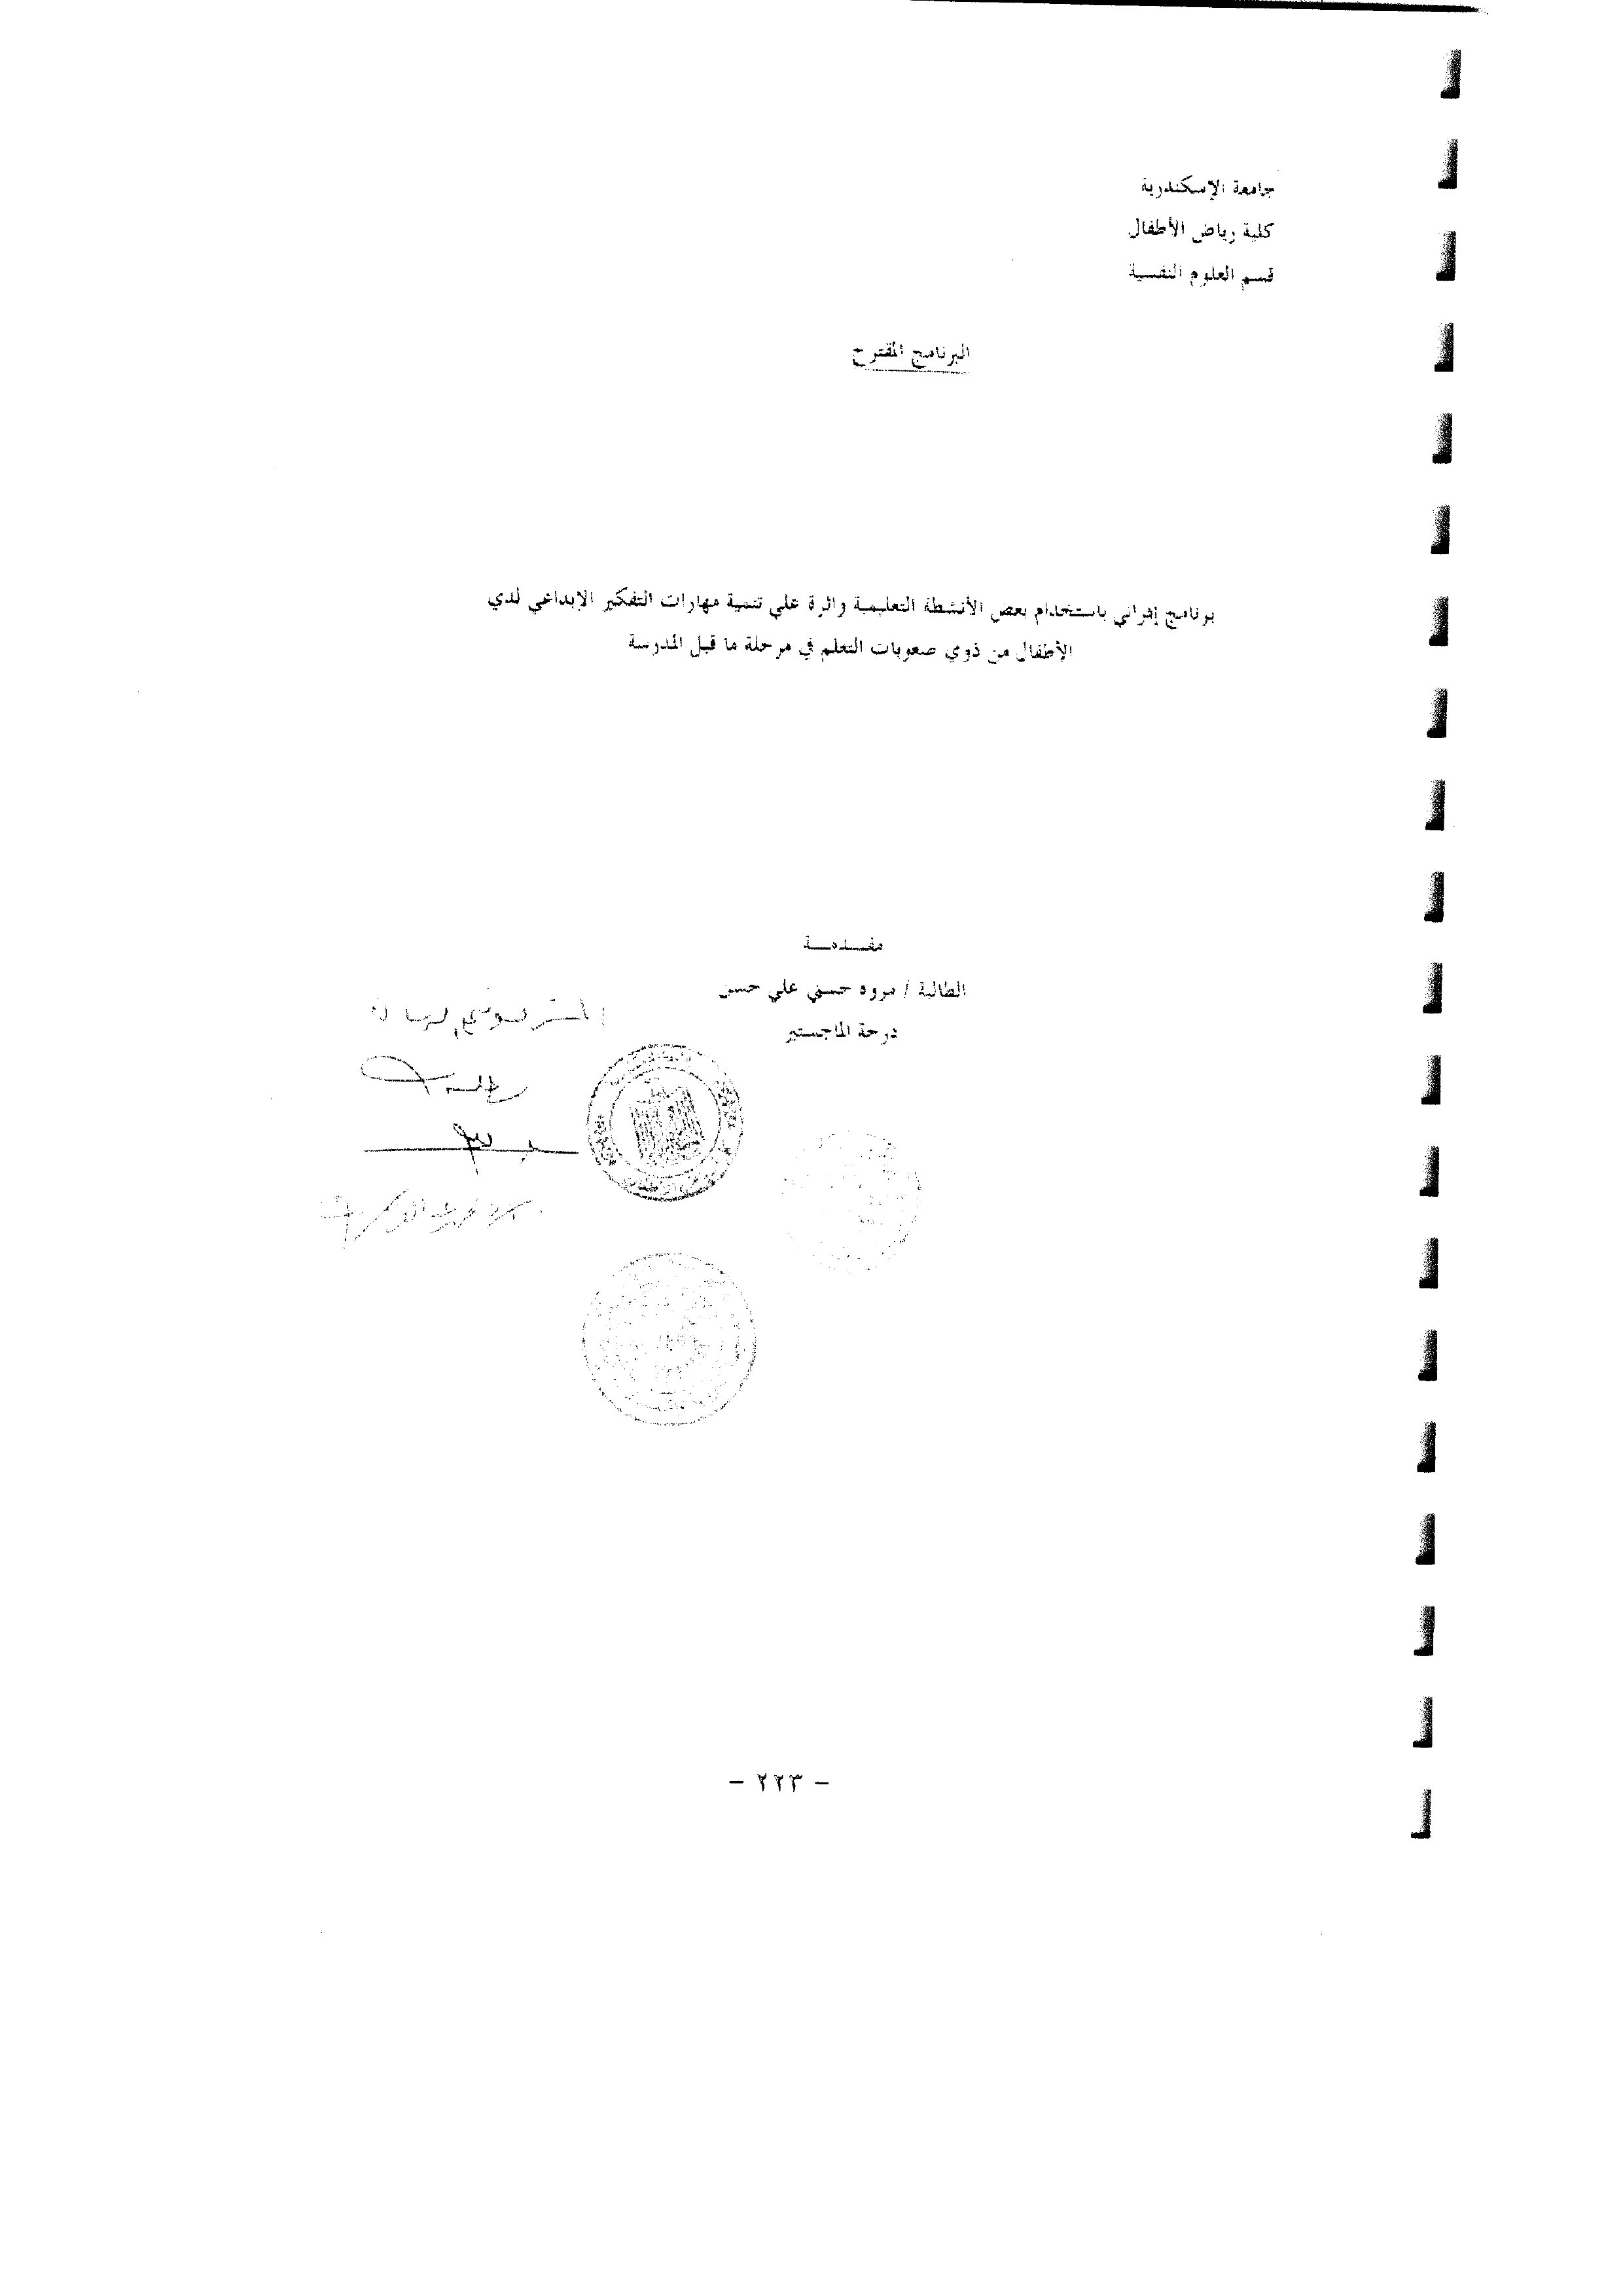 جامعة الإسكندرية
كلية رياض الأطفال
قسم العلوم النفسية
البرنامج المقترح
برنامج إثرائي باستخدام بعض الأنشطة التعليمية واثرة علي تنمية مهارات التفكير الإبداعي لدي
الأطفال من ذوي صعوبات التعلم في مرحلة ما قبل المدرسة
مقـــدمـــة
الطالبة / مروه حسني علي حسن
درجة الماجستير
- ٢٢٣ -